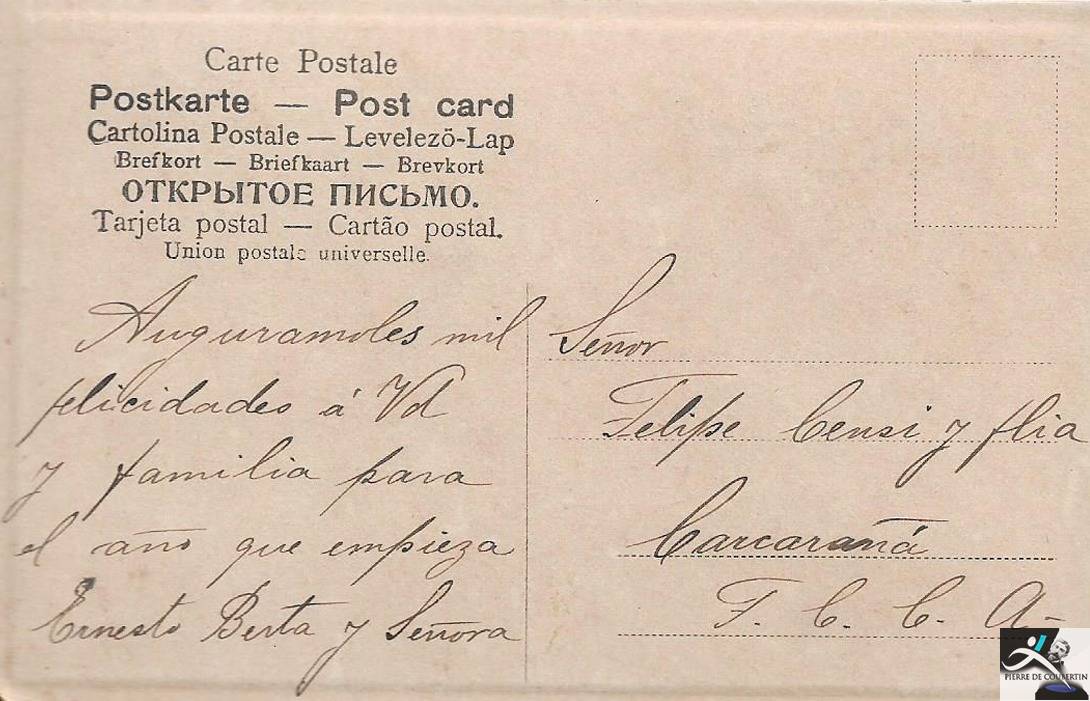 Carte Postale
Postkarte — Post card
Cartolina Postale — Levelezō-Lap
Brefkort — Briefkaart — Brevkort
ОТКРЫТОЕ ПИСЬМО.
Tarjeta postal — Cartão postal.
Union postale universelle.
Auguramoles mil
felicidades á Vd
y familia para
el año que empieza
Ernesto Berta y Señora
Señor
Felipe Censi y flia
Carcarañá
F. C. C. A-
PIERRE DE COUBERTIN